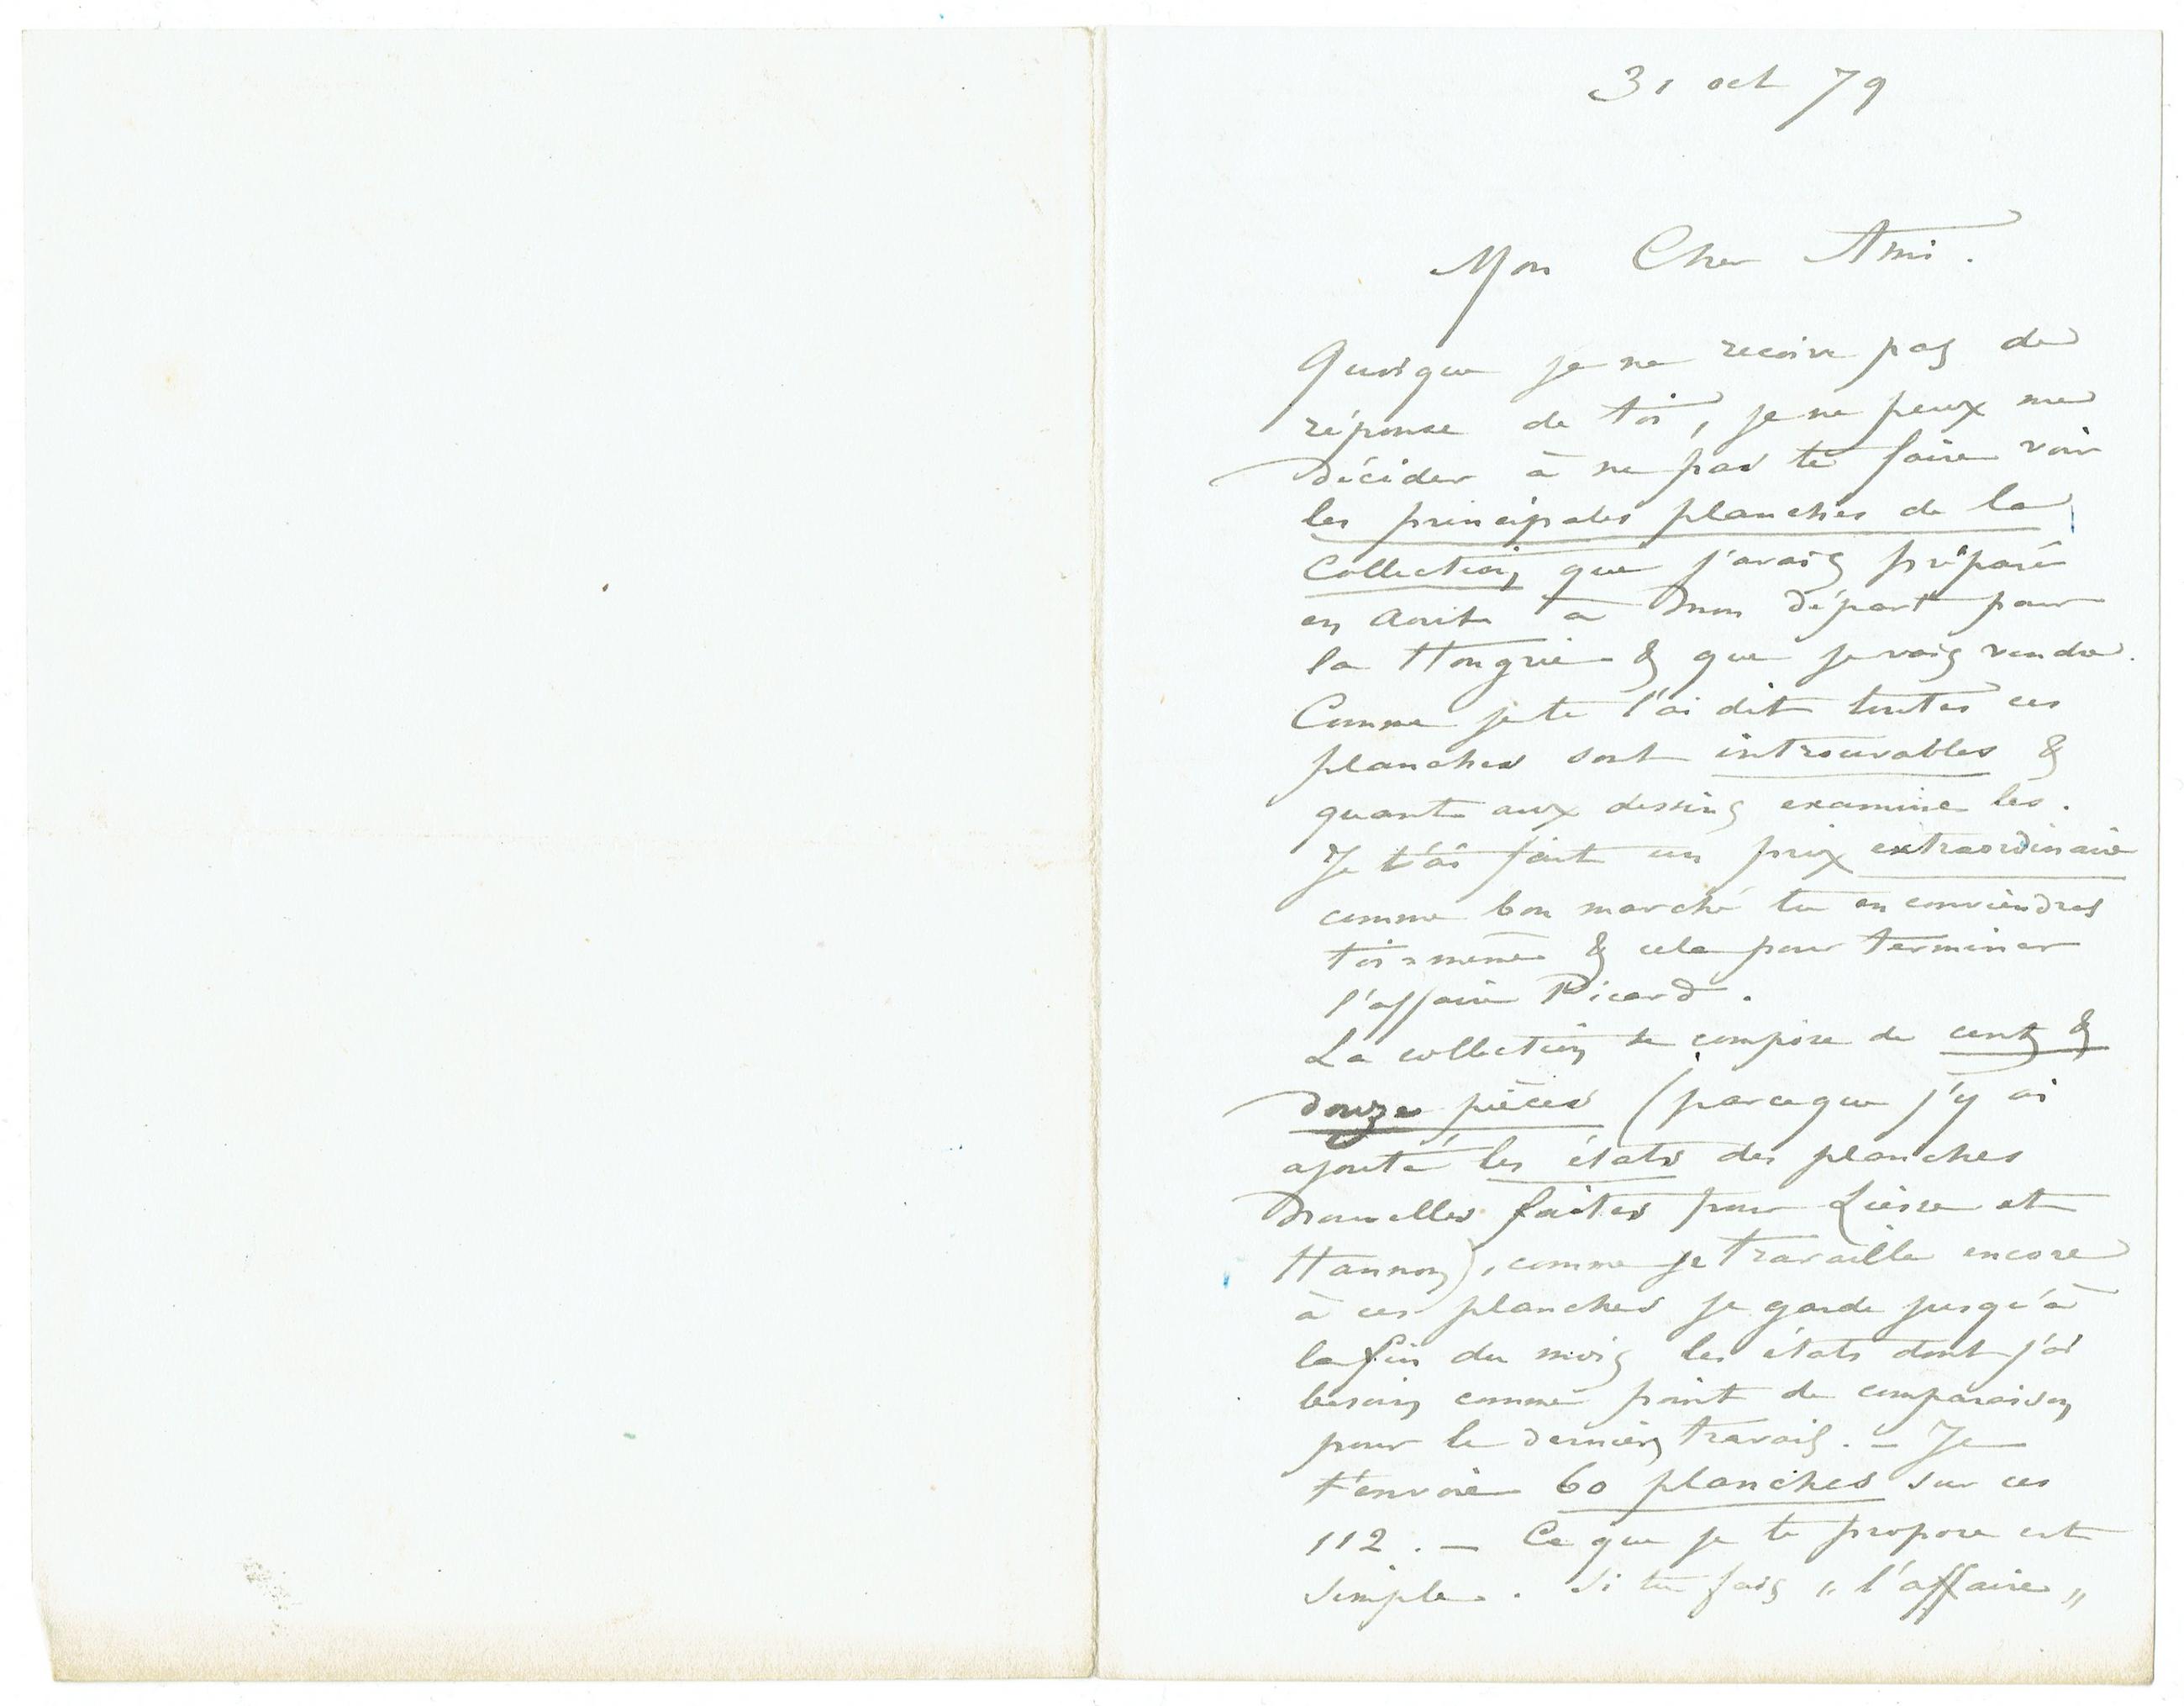 31 oct 79
Mon Cher Ami.
Quoique je ne recoive pas de
réponse de toi, je ne peux me
décider à ne pas te faire voir
les principales planches de la
Collection que j'avais préparé
en Aout à mon départ pour
la Hongrie & que je vais vendre.
Comme je te l'ai dit toutes ces
planches sont introuvables &
quant aux dessins examine les.
Je t'ai fait un prix extraordinaire
comme bon marché tu en conviendras
toi-même & cela pour terminer
l'affaire Picard.
La collection se compose de cent &
douze pièces (parceque j'y ai
ajouté les états des planches
nouvelles faites pour Liesse et
Hannon), comme je travaille encore
à ces planches je garde jusqu'à
la fin du mois les états dont j'ai
besoin comme point de comparaison
pour le dernier travail. – Je
t'envoie 60 planches sur ces
112. – Ce que je te propose est
simple. Si tu fais „l'affaire„